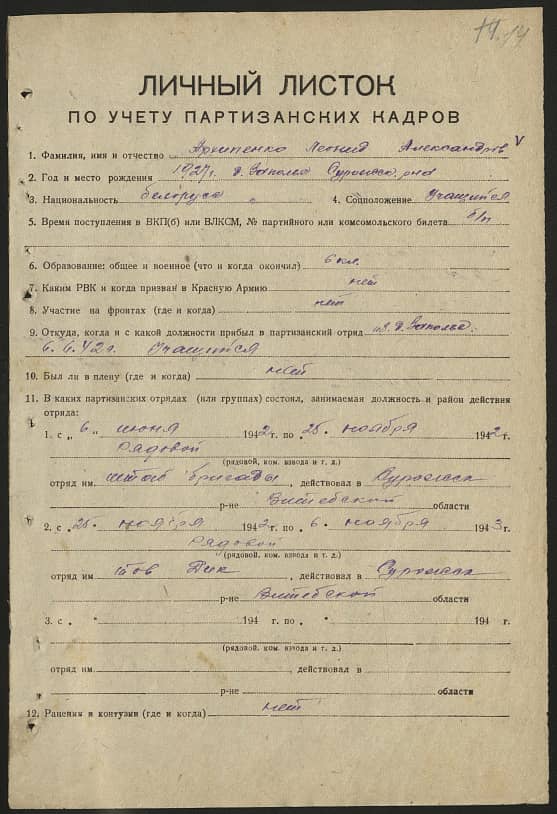 14
ЛИЧНЫЙ ЛИСТОК
ПО УЧЕТУ ПАРТИЗАНСКИХ КАДРОВ
1. Фамилия, имя и отчество Архипенко Леонид Александров
2. Год и место рождения 1927 г. д. Заполье Суражск. рна
3. Национальность белорус 4. Соцположение Учащийся
5. Время поступления в ВКП(б) или ВЛКСМ, № партийного или комсомольского билета б/п
6. Образование: общее и военное (что и когда окончил) 6 кл.
7. Каким РВК и когда призван в Красную Армию нет
8. Участие на фронтах (где и когда) нет
9. Откуда, когда и с какой должности прибыл в партизанский отряд из д. Заполье
6.6.42 г. Учащийся
10. Был ли в плену (где и когда) нет
11. В каких партизанских отрядах (или группах) состоял, занимаемая должность и район действия
отряда:
1. с „ 6 " июня 1942 г. по „ 25 " ноября 1942 г.
Рядовой
(рядовой, ком. взвода и т. д.)
отряд им. штаб бригады, действовал в Суражск
р-не Витебской области
2. с „ 25 " ноября 1942 г. по „ 6 " ноября 1943 г.
Рядовой
(рядовой, ком. взвода и т. д.)
отряд им тов Дик, действовал в Суражск
р-не Витебской области
3. с „ " 194 г. по „ " 194 г.
(рядовой, ком. взвода и т. д.)
отряд им. , действовал в
р-не области
12. Ранения и контузии (где и когда) нет